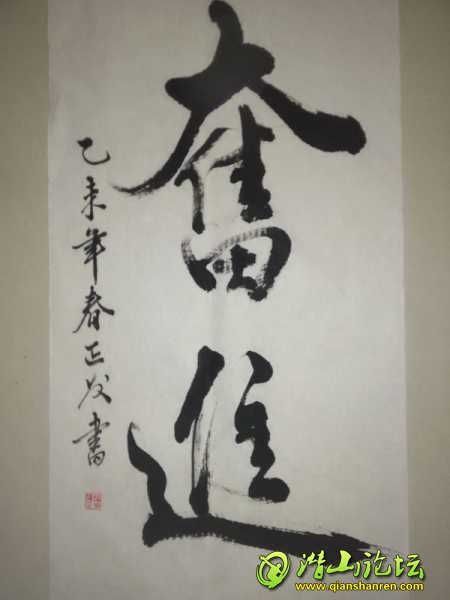 奮進
乙未年春正发書
潜山论坛
www.qianshanren.com